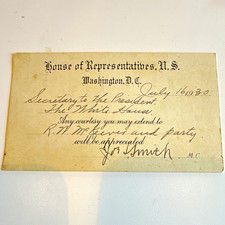 House of Representatives, U.S.
Washington, D.C.
July 16, 1930.
Secretary to the President,
The White House.
Any courtesy you may extend to
R. W. and party
will be appreciated
M.C.